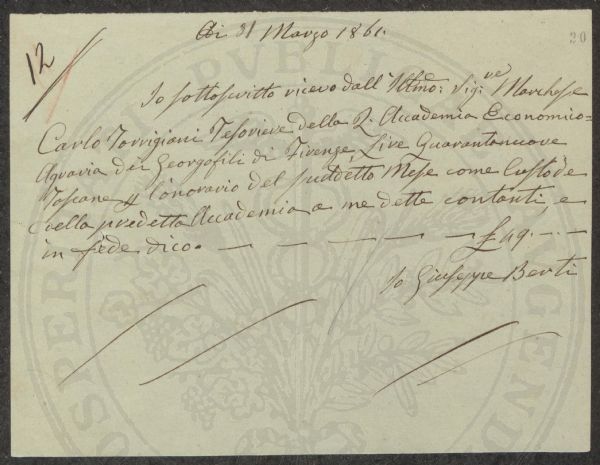 Di 31 Marzo 1861.
20
12
Io sottoscritto ricevo dall' Illmo: Sig:re Marchese
Carlo Torrigiani Tesoriere della R. Accademia Economico-
Agraria dei Georgofili di Firenze, Lire Quarantanove
Toscane p l'onorario del suddetto Mese come Custode
della predetta Accademia a me dette contanti, e
in fede dico. — — — — — — £ 49. — —
Io Giuseppe Berti
PUBLI
PROSPERI
GENDO